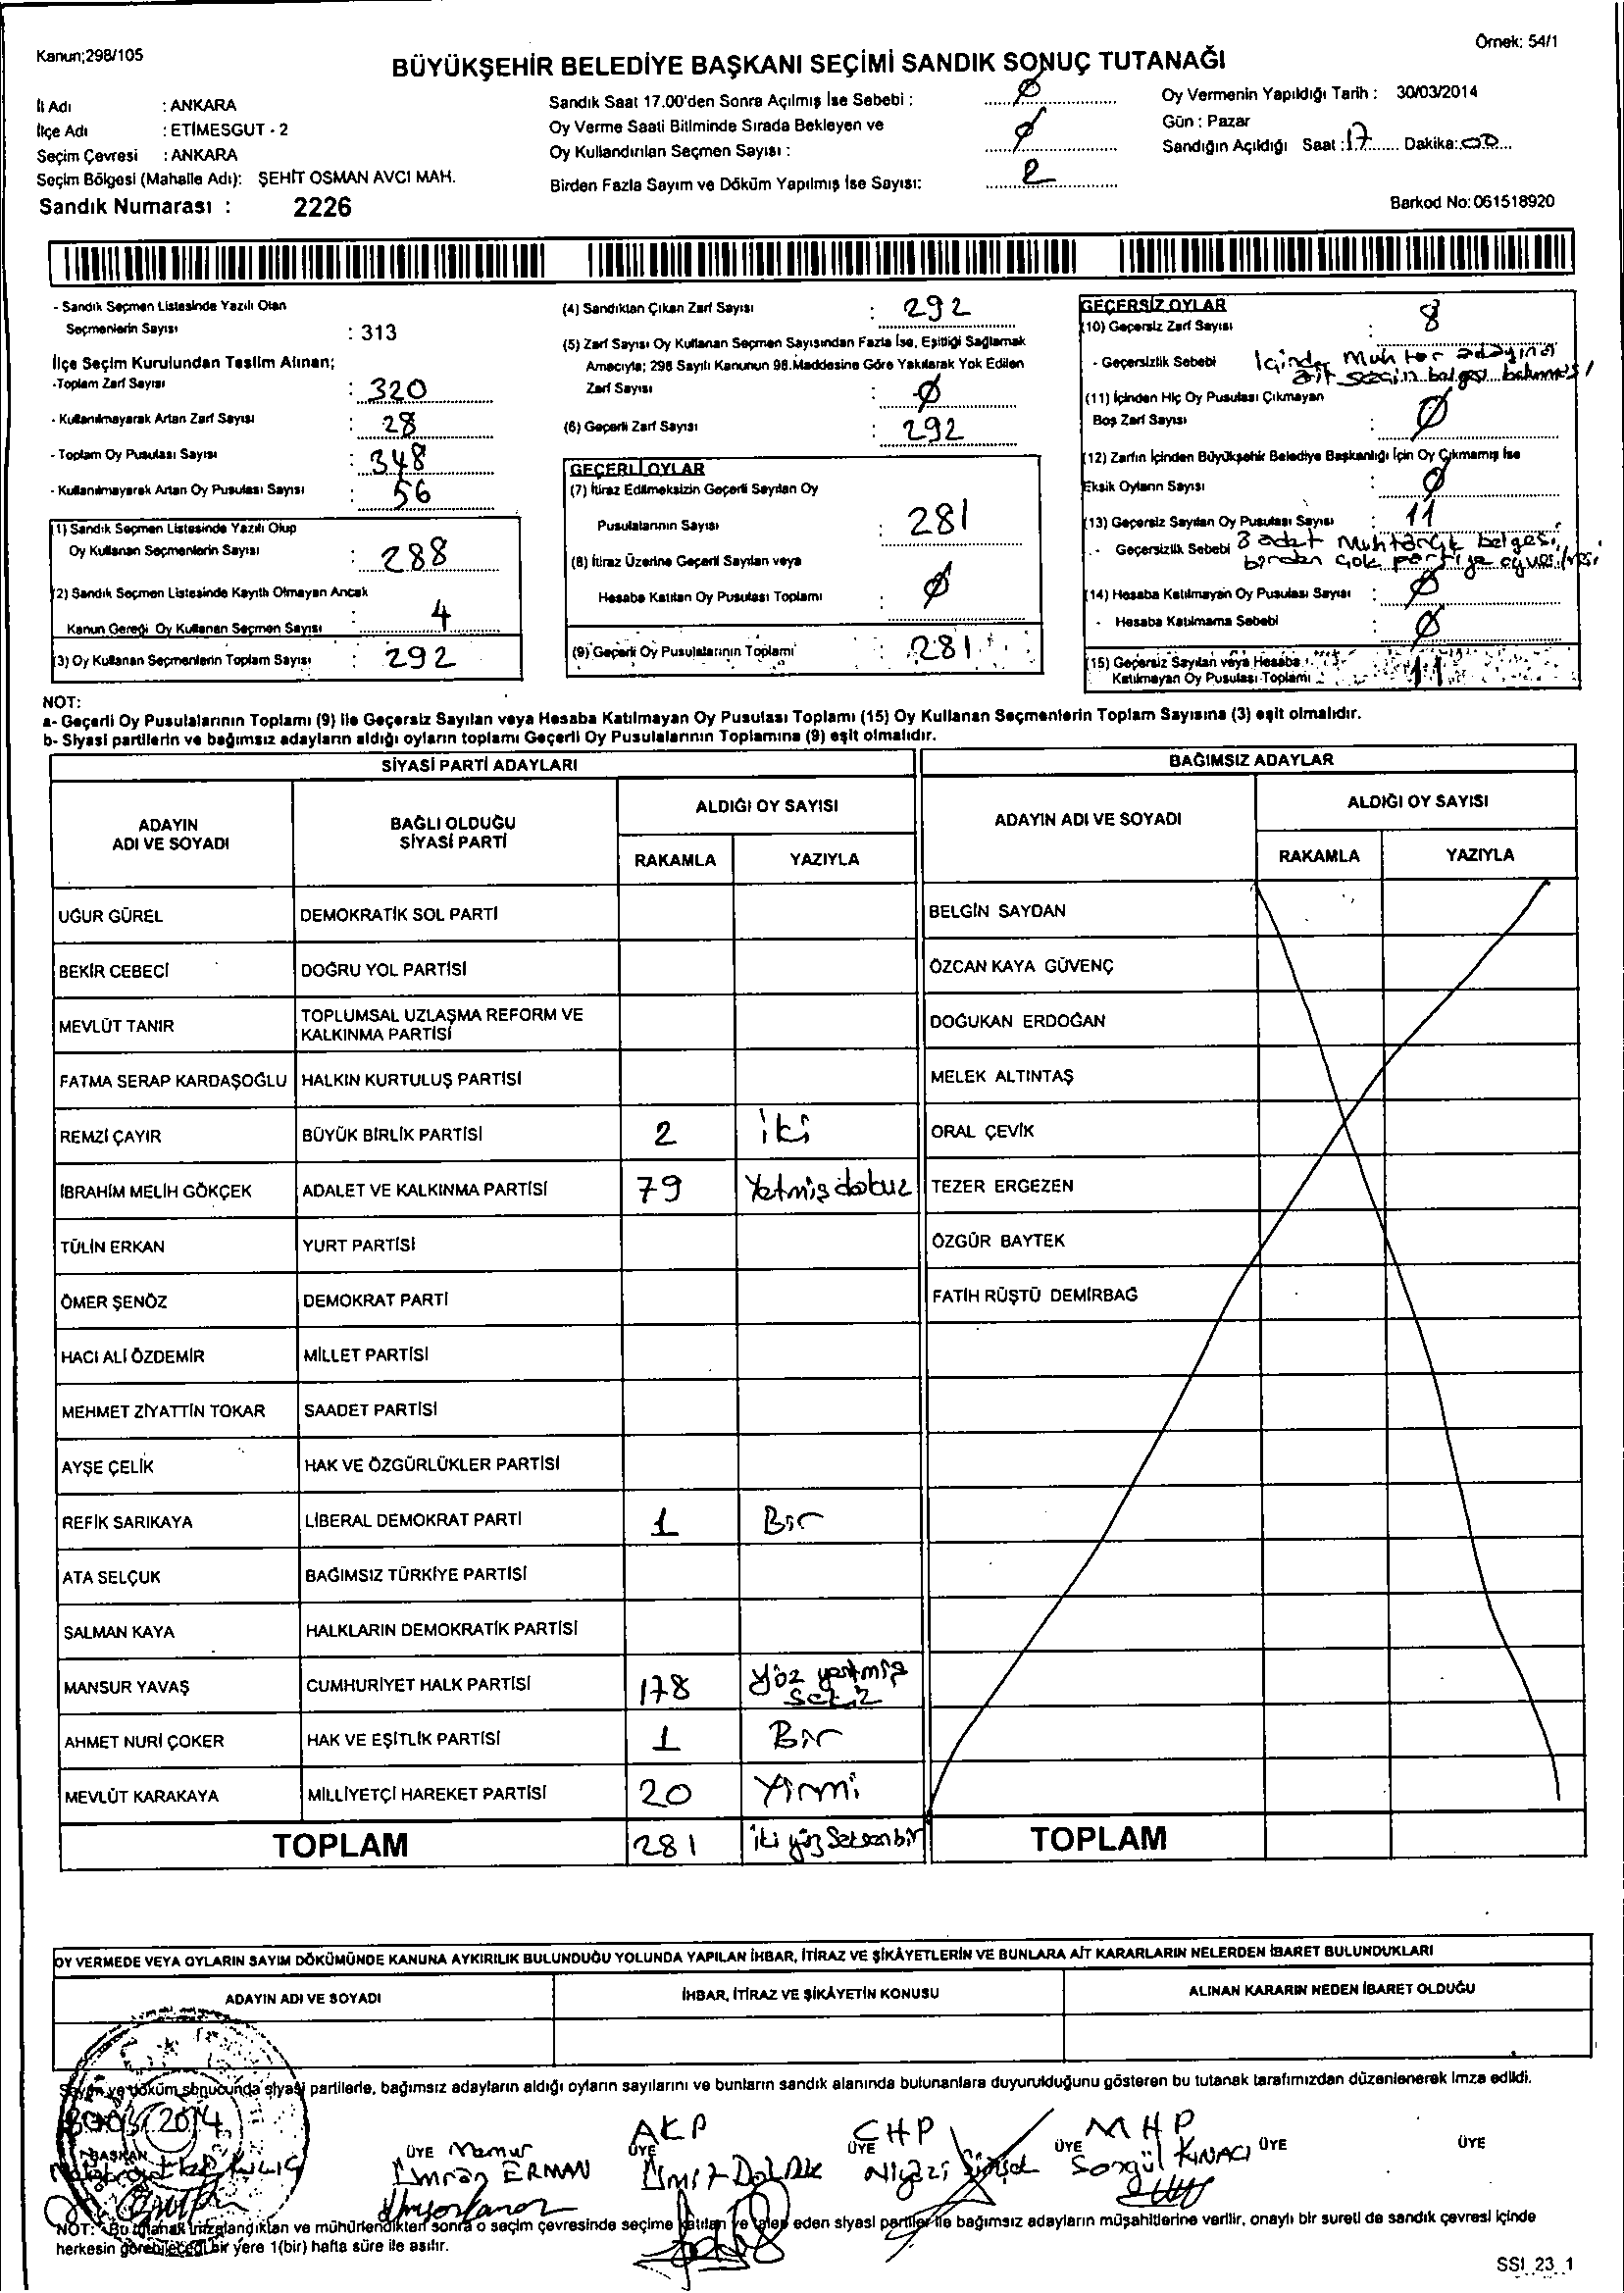 Kanun;298/105
Örnek: 54/1
BÜYÜKŞEHİR BELEDİYE BAŞKANI SEÇİMİ SANDIK SONUÇ TUTANAĞI
İl Adı : ANKARA
İlçe Adı : ETİMESGUT - 2
Seçim Çevresi : ANKARA
Seçim Bölgesi (Mahalle Adı): ŞEHİT OSMAN AVCI MAH.
Sandık Numarası : 2226
Sandık Saat 17.00'den Sonra Açılmış İse Sebebi : Ø
Oy Verme Saati Bitiminde Sırada Bekleyen ve
Oy Kullandırılan Seçmen Sayısı : Ø
Birden Fazla Sayım ve Döküm Yapılmış İse Sayısı: 2
Oy Vermenin Yapıldığı Tarih : 30/03/2014
Gün : Pazar
Sandığın Açıldığı Saat : 17 Dakika: 00
Barkod No: 061518920
- Sandık Seçmen Listesinde Yazılı Olan
Seçmenlerin Sayısı : 313
İlçe Seçim Kurulundan Teslim Alınan;
-Toplam Zarf Sayısı : 320
- Kullanılmayarak Artan Zarf Sayısı : 28
- Toplam Oy Pusulası Sayısı : 348
- Kullanılmayarak Artan Oy Pusulası Sayısı : 56
(1) Sandık Seçmen Listesinde Yazılı Olup
Oy Kullanan Seçmenlerin Sayısı : 288
(2) Sandık Seçmen Listesinde Kayıtlı Olmayan Ancak
Kanun Gereği Oy Kullanan Seçmen Sayısı : 4
(3) Oy Kullanan Seçmenlerin Toplam Sayısı : 292
(4) Sandıktan Çıkan Zarf Sayısı : 292
(5) Zarf Sayısı Oy Kullanan Seçmen Sayısından Fazla İse, Eşitliği Sağlamak
Amacıyla; 298 Sayılı Kanunun 98.Maddesine Göre Yakılarak Yok Edilen
Zarf Sayısı : Ø
(6) Geçerli Zarf Sayısı : 292
GEÇERLİ OYLAR
(7) İtiraz Edilmeksizin Geçerli Sayılan Oy
Pusulalarının Sayısı : 281
(8) İtiraz Üzerine Geçerli Sayılan veya
Hesaba Katılan Oy Pusulası Toplamı : Ø
(9) Geçerli Oy Pusulalarının Toplamı : 281
GEÇERSİZ OYLAR
(10) Geçersiz Zarf Sayısı : 8
- Geçersizlik Sebebi İçinde Muhtar adayına
ait seçim belgesi bulunması
(11) İçinden Hiç Oy Pusulası Çıkmayan
Boş Zarf Sayısı : Ø
(12) Zarfın İçinden Büyükşehir Belediye Başkanlığı İçin Oy Çıkmamış İse
Eksik Oyların Sayısı : Ø
(13) Geçersiz Sayılan Oy Pusulası Sayısı : 11
- Geçersizlik Sebebi 8 adet Muhtarlık belgesi,
birden çok partiye oy verilmesi
(14) Hesaba Katılmayan Oy Pusulası Sayısı : Ø
- Hesaba Katılmama Sebebi : Ø
(15) Geçersiz Sayılan veya Hesaba
Katılmayan Oy Pusulası Toplamı : 11
NOT:
a- Geçerli Oy Pusulalarının Toplamı (9) ile Geçersiz Sayılan veya Hesaba Katılmayan Oy Pusulası Toplamı (15) Oy Kullanan Seçmenlerin Toplam Sayısına (3) eşit olmalıdır.
b- Siyasi partilerin ve bağımsız adayların aldığı oyların toplamı Geçerli Oy Pusulalarının Toplamına (9) eşit olmalıdır.
SİYASİ PARTİ ADAYLARI
ADAYIN ADI VE SOYADI
BAĞLI OLDUĞU SİYASİ PARTİ
ALDIĞI OY SAYISI
RAKAMLA YAZIYLA
UĞUR GÜREL DEMOKRATİK SOL PARTİ
BEKİR CEBECİ DOĞRU YOL PARTİSİ
MEVLÜT TANIR TOPLUMSAL UZLAŞMA REFORM VE
KALKINMA PARTİSİ
FATMA SERAP KARDAŞOĞLU HALKIN KURTULUŞ PARTİSİ
REMZİ ÇAYIR BÜYÜK BİRLİK PARTİSİ 2 iki
İBRAHİM MELİH GÖKÇEK ADALET VE KALKINMA PARTİSİ 79 Yetmiş dokuz
TÜLİN ERKAN YURT PARTİSİ
ÖMER ŞENÖZ DEMOKRAT PARTİ
HACI ALİ ÖZDEMİR MİLLET PARTİSİ
MEHMET ZİYATTİN TOKAR SAADET PARTİSİ
AYŞE ÇELİK HAK VE ÖZGÜRLÜKLER PARTİSİ
REFİK SARIKAYA LİBERAL DEMOKRAT PARTİ 1 Bir
ATA SELÇUK BAĞIMSIZ TÜRKİYE PARTİSİ
SALMAN KAYA HALKLARIN DEMOKRATİK PARTİSİ
MANSUR YAVAŞ CUMHURİYET HALK PARTİSİ 178 Yüz yetmiş
sekiz
AHMET NURİ ÇOKER HAK VE EŞİTLİK PARTİSİ 1 Bir
MEVLÜT KARAKAYA MİLLİYETÇİ HAREKET PARTİSİ 20 Yirmi
TOPLAM 281 iki yüz Seksen bir
BAĞIMSIZ ADAYLAR
ADAYIN ADI VE SOYADI
ALDIĞI OY SAYISI
RAKAMLA YAZIYLA
BELGİN SAYDAN
ÖZCAN KAYA GÜVENÇ
DOĞUKAN ERDOĞAN
MELEK ALTINTAŞ
ORAL ÇEVİK
TEZER ERGEZEN
ÖZGÜR BAYTEK
FATİH RÜŞTÜ DEMİRBAĞ
TOPLAM
OY VERMEDE VEYA OYLARIN SAYIM DÖKÜMÜNDE KANUNA AYKIRILIK BULUNDUĞU YOLUNDA YAPILAN İHBAR, İTİRAZ VE ŞİKÂYETLERİN VE BUNLARA AİT KARARLARIN NELERDEN İBARET BULUNDUKLARI
ADAYIN ADI VE SOYADI İHBAR, İTİRAZ VE ŞİKÂYETİN KONUSU ALINAN KARARIN NEDEN İBARET OLDUĞU
Sayım ve döküm sonucunda siyasi partilerle, bağımsız adayların aldığı oyların sayılarını ve bunların sandık alanında bulunanlara duyurulduğunu gösteren bu tutanak tarafımızdan düzenlenerek imza edildi.
2014
AKP CHP MHP
BAŞKAN ÜYE Memur ÜYE ÜYE ÜYE ÜYE ÜYE
ERMAN Ümit Niyazi Songül KINACI
NOT: Bu tutanak imzalandıktan ve mühürlendikten sonra o seçim çevresinde seçime katılan ve talep eden siyasi partiler ile bağımsız adayların müşahitlerine verilir, onaylı bir sureti de sandık çevresi içinde
herkesin görebileceği bir yere 1(bir) hafta süre ile asılır.
SSI_23_1